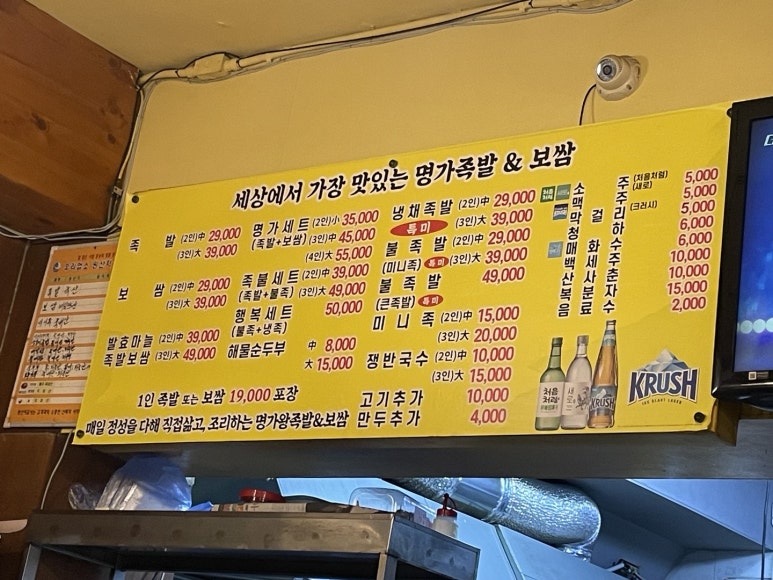 세상에서 가장 맛있는 명가족발 & 보쌈
족 발 (2인)中 29,000
(3인)大 39,000
보 쌈 (2인)中 29,000
(3인)大 39,000
발효마늘 (2인)中 39,000
족발보쌈 (3인)大 49,000
명가세트 (2인)小 35,000
(족발+보쌈) (3인)中 45,000
(4인)大 55,000
족불세트 (2인)中 39,000
(족발+불족) (3인)大 49,000
행복세트 50,000
(불족+냉족)
해물순두부 中 8,000
大 15,000
냉채족발 (2인)中 29,000
특미 (3인)大 39,000
불족발 (2인)中 29,000
(미니족) 특미 (3인)大 39,000
불족발 49,000
(큰족발) 특미
미니족 (2인)中 15,000
(3인)大 20,000
쟁반국수 (2인)中 10,000
(3인)大 15,000
고기추가 10,000
만두추가 4,000
1인 족발 또는 보쌈 19,000 포장
매일 정성을 다해 직접삶고, 조리하는 명가왕족발&보쌈
소주 (처음처럼) (새로) 5,000
맥주 (크러시) 5,000
막걸리 5,000
청하 6,000
매화수 6,000
백세주 10,000
산사춘 10,000
복분자 15,000
음료수 2,000
처음처럼
새로
KRUSH
KRUSH